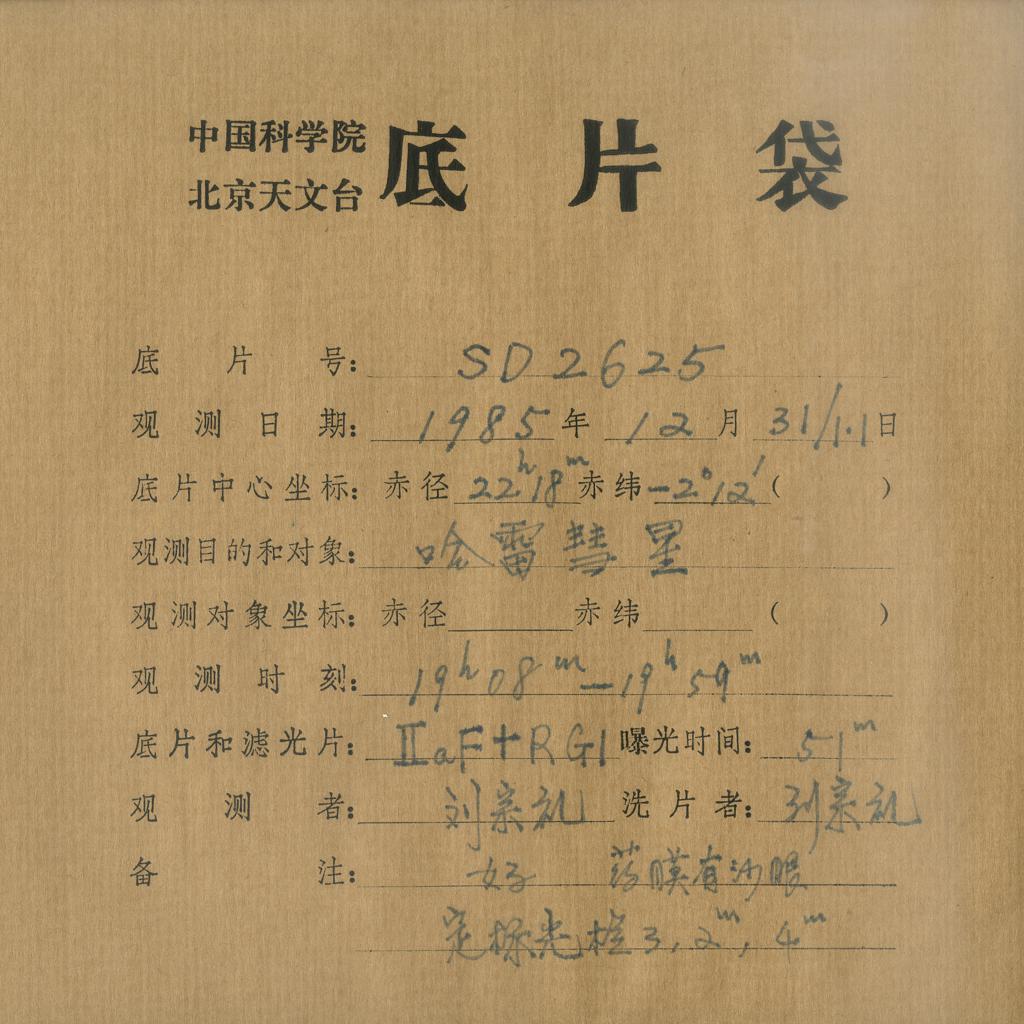 中国科学院
北京天文台
底片袋
底片号: SD2625
观测日期: 1985年12月31/1.1日
底片中心坐标: 赤径22h18m赤纬-2°12′( )
观测目的和对象: 哈雷彗星
观测对象坐标: 赤径 赤纬 ( )
观测时刻: 19h08m—19h59m
底片和滤光片: ⅡaF+RG1 曝光时间: 51m
观测者: 刘宗礼 洗片者: 刘宗礼
备注: 好 药膜有沙眼
定标光栏3, 2m, 4m